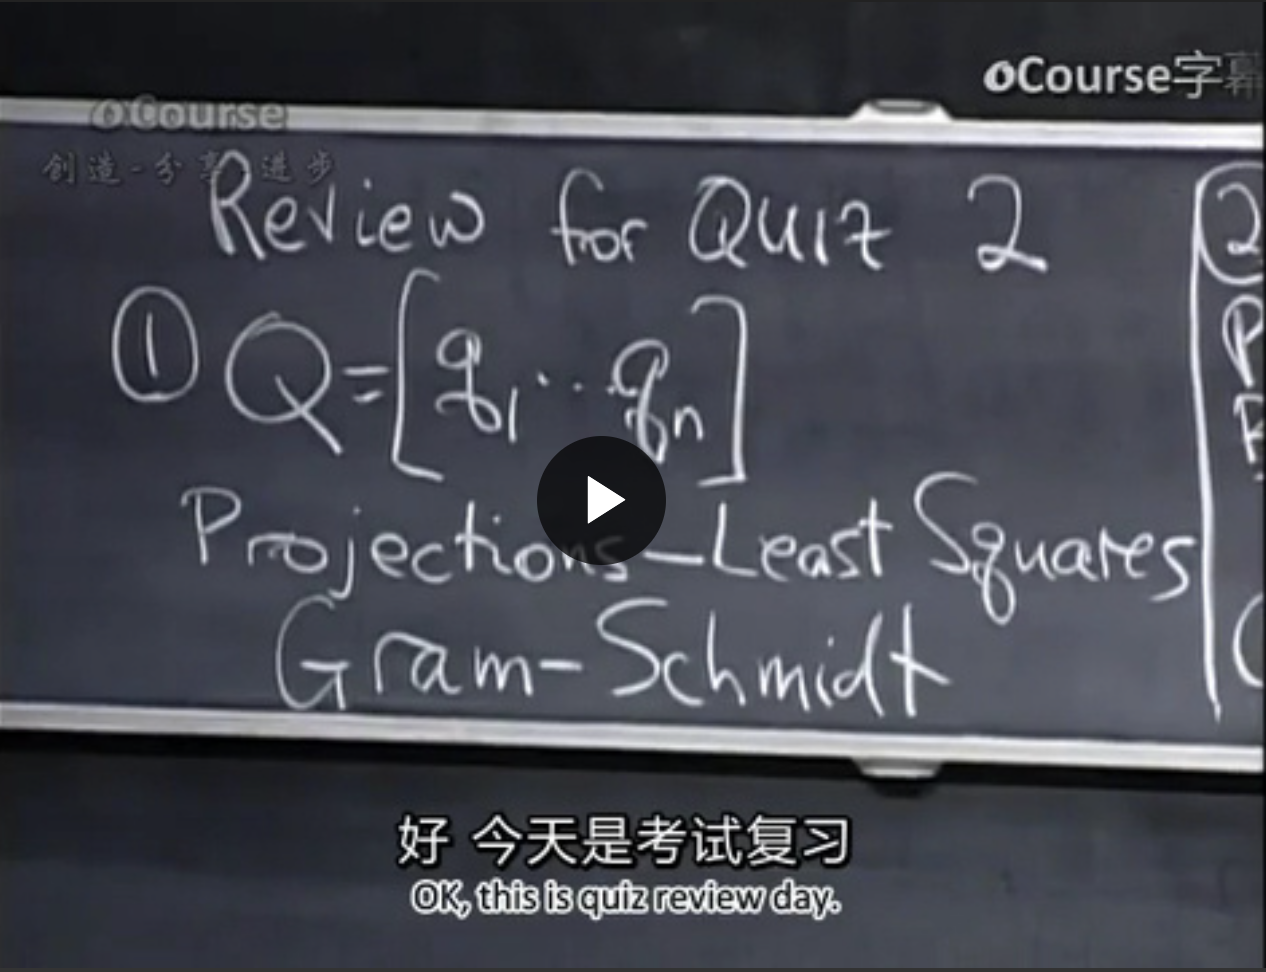 oCourse字幕
oCourse
创造-分享-进步
Review for QUIZ 2
① Q=[q1...qn]
Projections-Least Squares
Gram-Schmidt
②
P
好 今天是考试复习
OK, this is quiz review day.